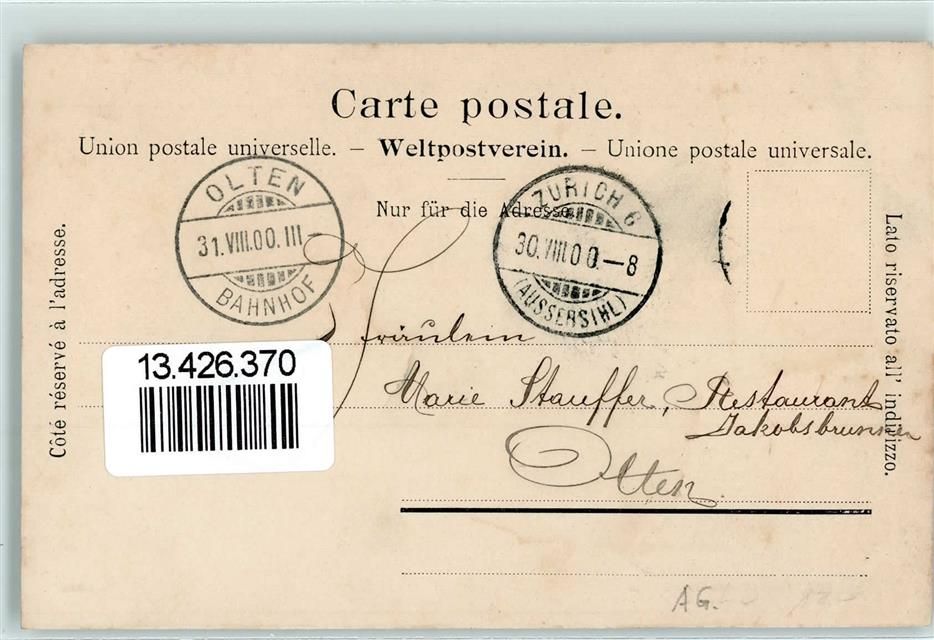 Carte postale.
Union postale universelle. – Weltpostverein. – Unione postale universale.
Nur für die Adresse.
OLTEN
31.VIII.00.III–
BAHNHOF
ZÜRICH 6
30.VIII.00.–8
(AUSSERSIHL)
Côté réservé à l'adresse.
Lato riservato all' indirizzo.
Fräulein
13.426.370
Marie Stauffer, Restaurant
Jakobsbrunnen
Olten.
AG.